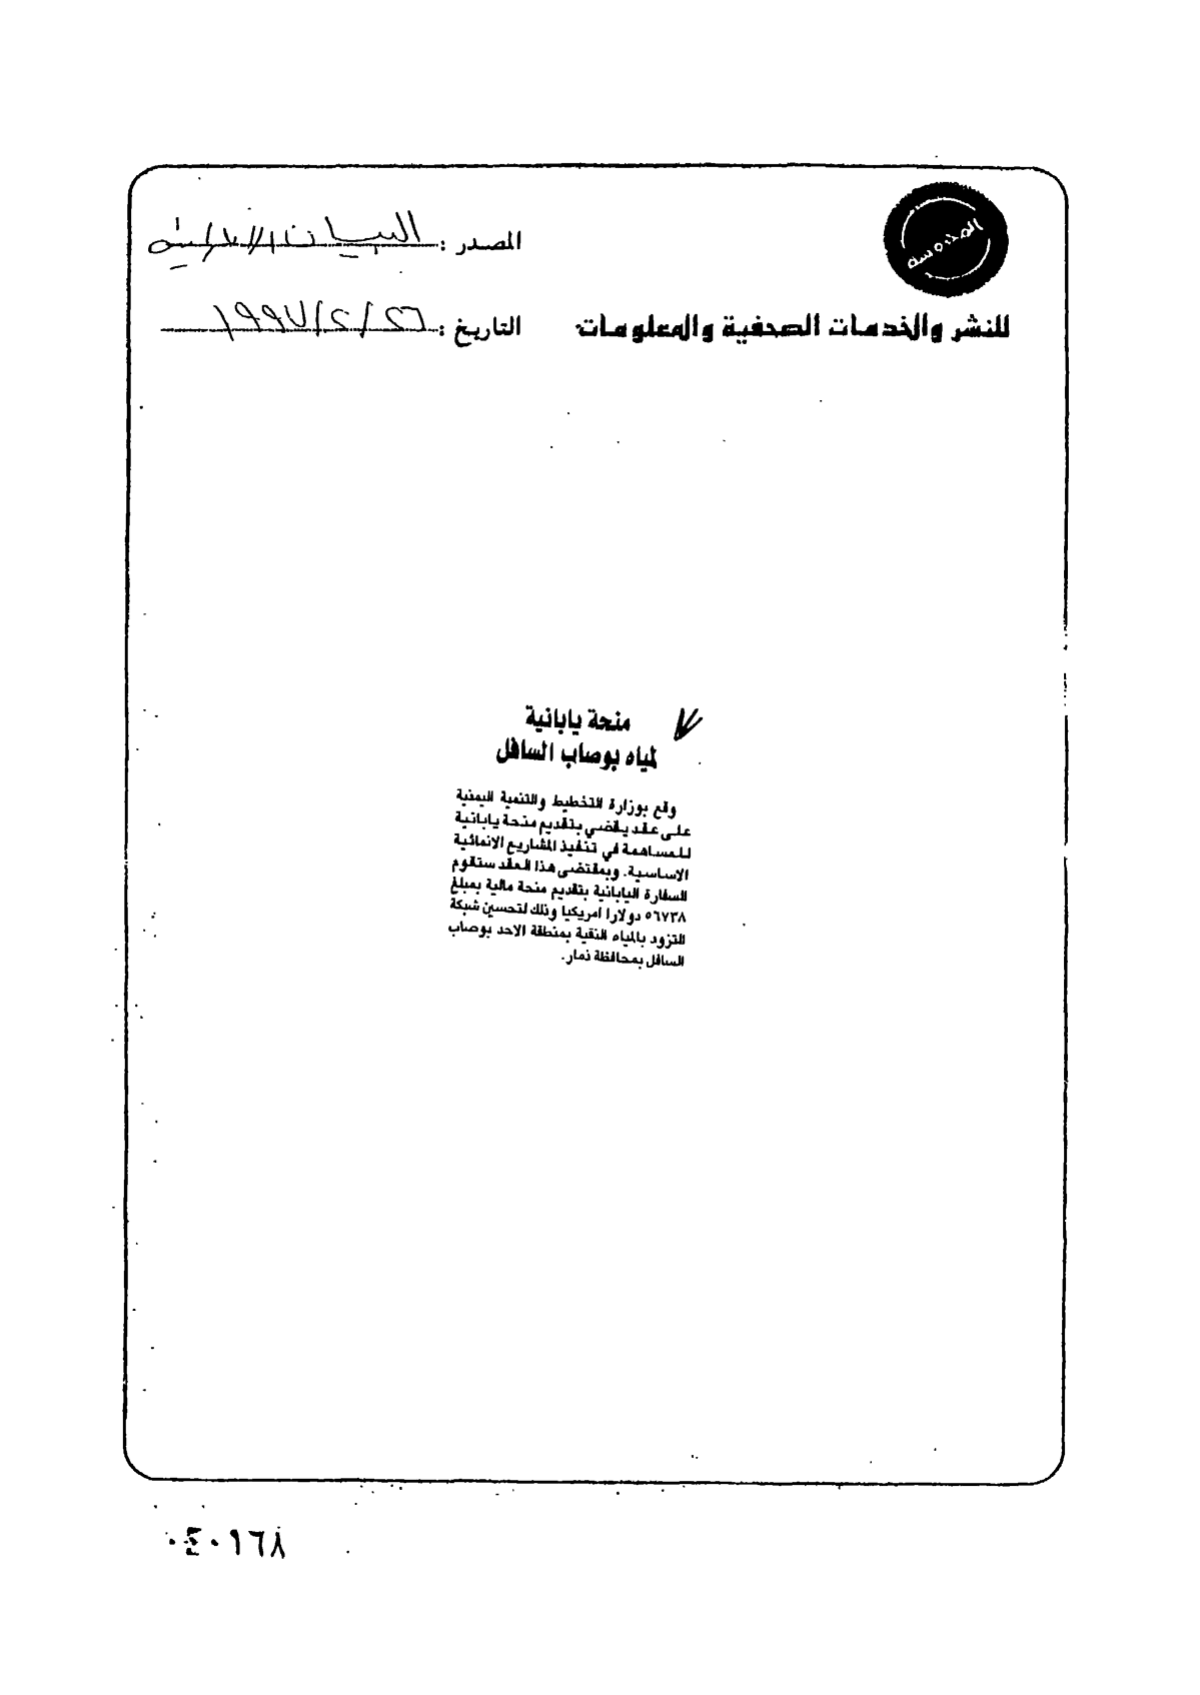 المحروسة
المصدر : البيان الإماراتية
للنشر والخدمات الصحفية والمعلومات
التاريخ : ٢٦/٢/١٩٩٧
منحة يابانية
لمياه بوصاب السافل
وقع بوزارة التخطيط والتنمية اليمنية
على عقد يقضي بتقديم منحة يابانية
للمساهمة في تنفيذ المشاريع الانمائية
الاساسية. وبمقتضى هذا العقد ستقوم
السفارة اليابانية بتقديم منحة مالية بمبلغ
٥٦٧٣٨ دولارا امريكيا وذلك لتحسين شبكة
التزود بالمياه النقية بمنطقة الاحد بوصاب
السافل بمحافظة ذمار.
٠٤٠١٦٨